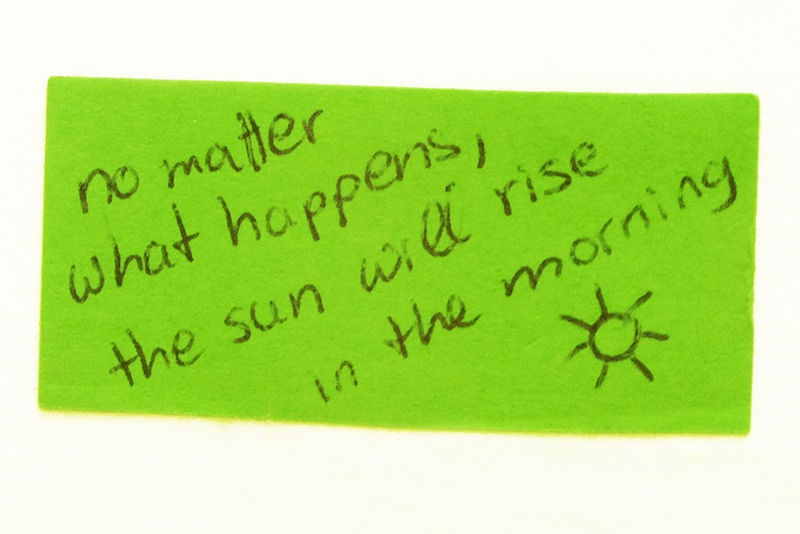 no matter
what happens,
the sun will rise
in the morning